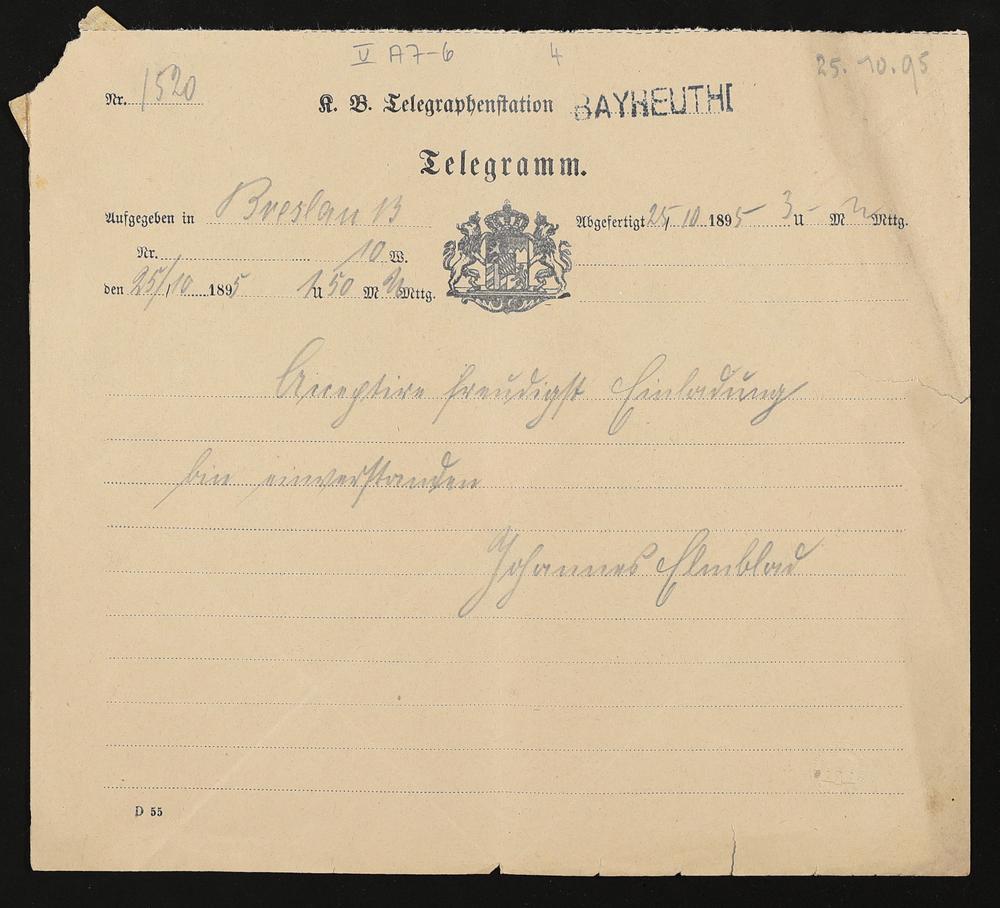 V A7-6 4 25.10.95
Nr. 1520 K. B. Telegraphenstation BAYREUTH I
Telegramm.
Aufgegeben in Breslau B Abgefertigt 25/10 1895 3 U M Mttg.
Nr. 10 W.
den 25/10 1895 1 U 50 M N Mttg.
Acceptire freudigst Einladung
bin einverstanden
Johannes Elmblad
D 55